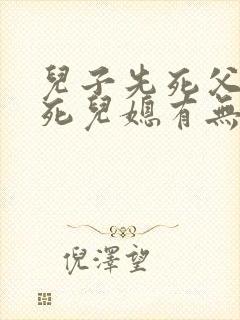 兒子先死父
死兒媳有無
倪澤望